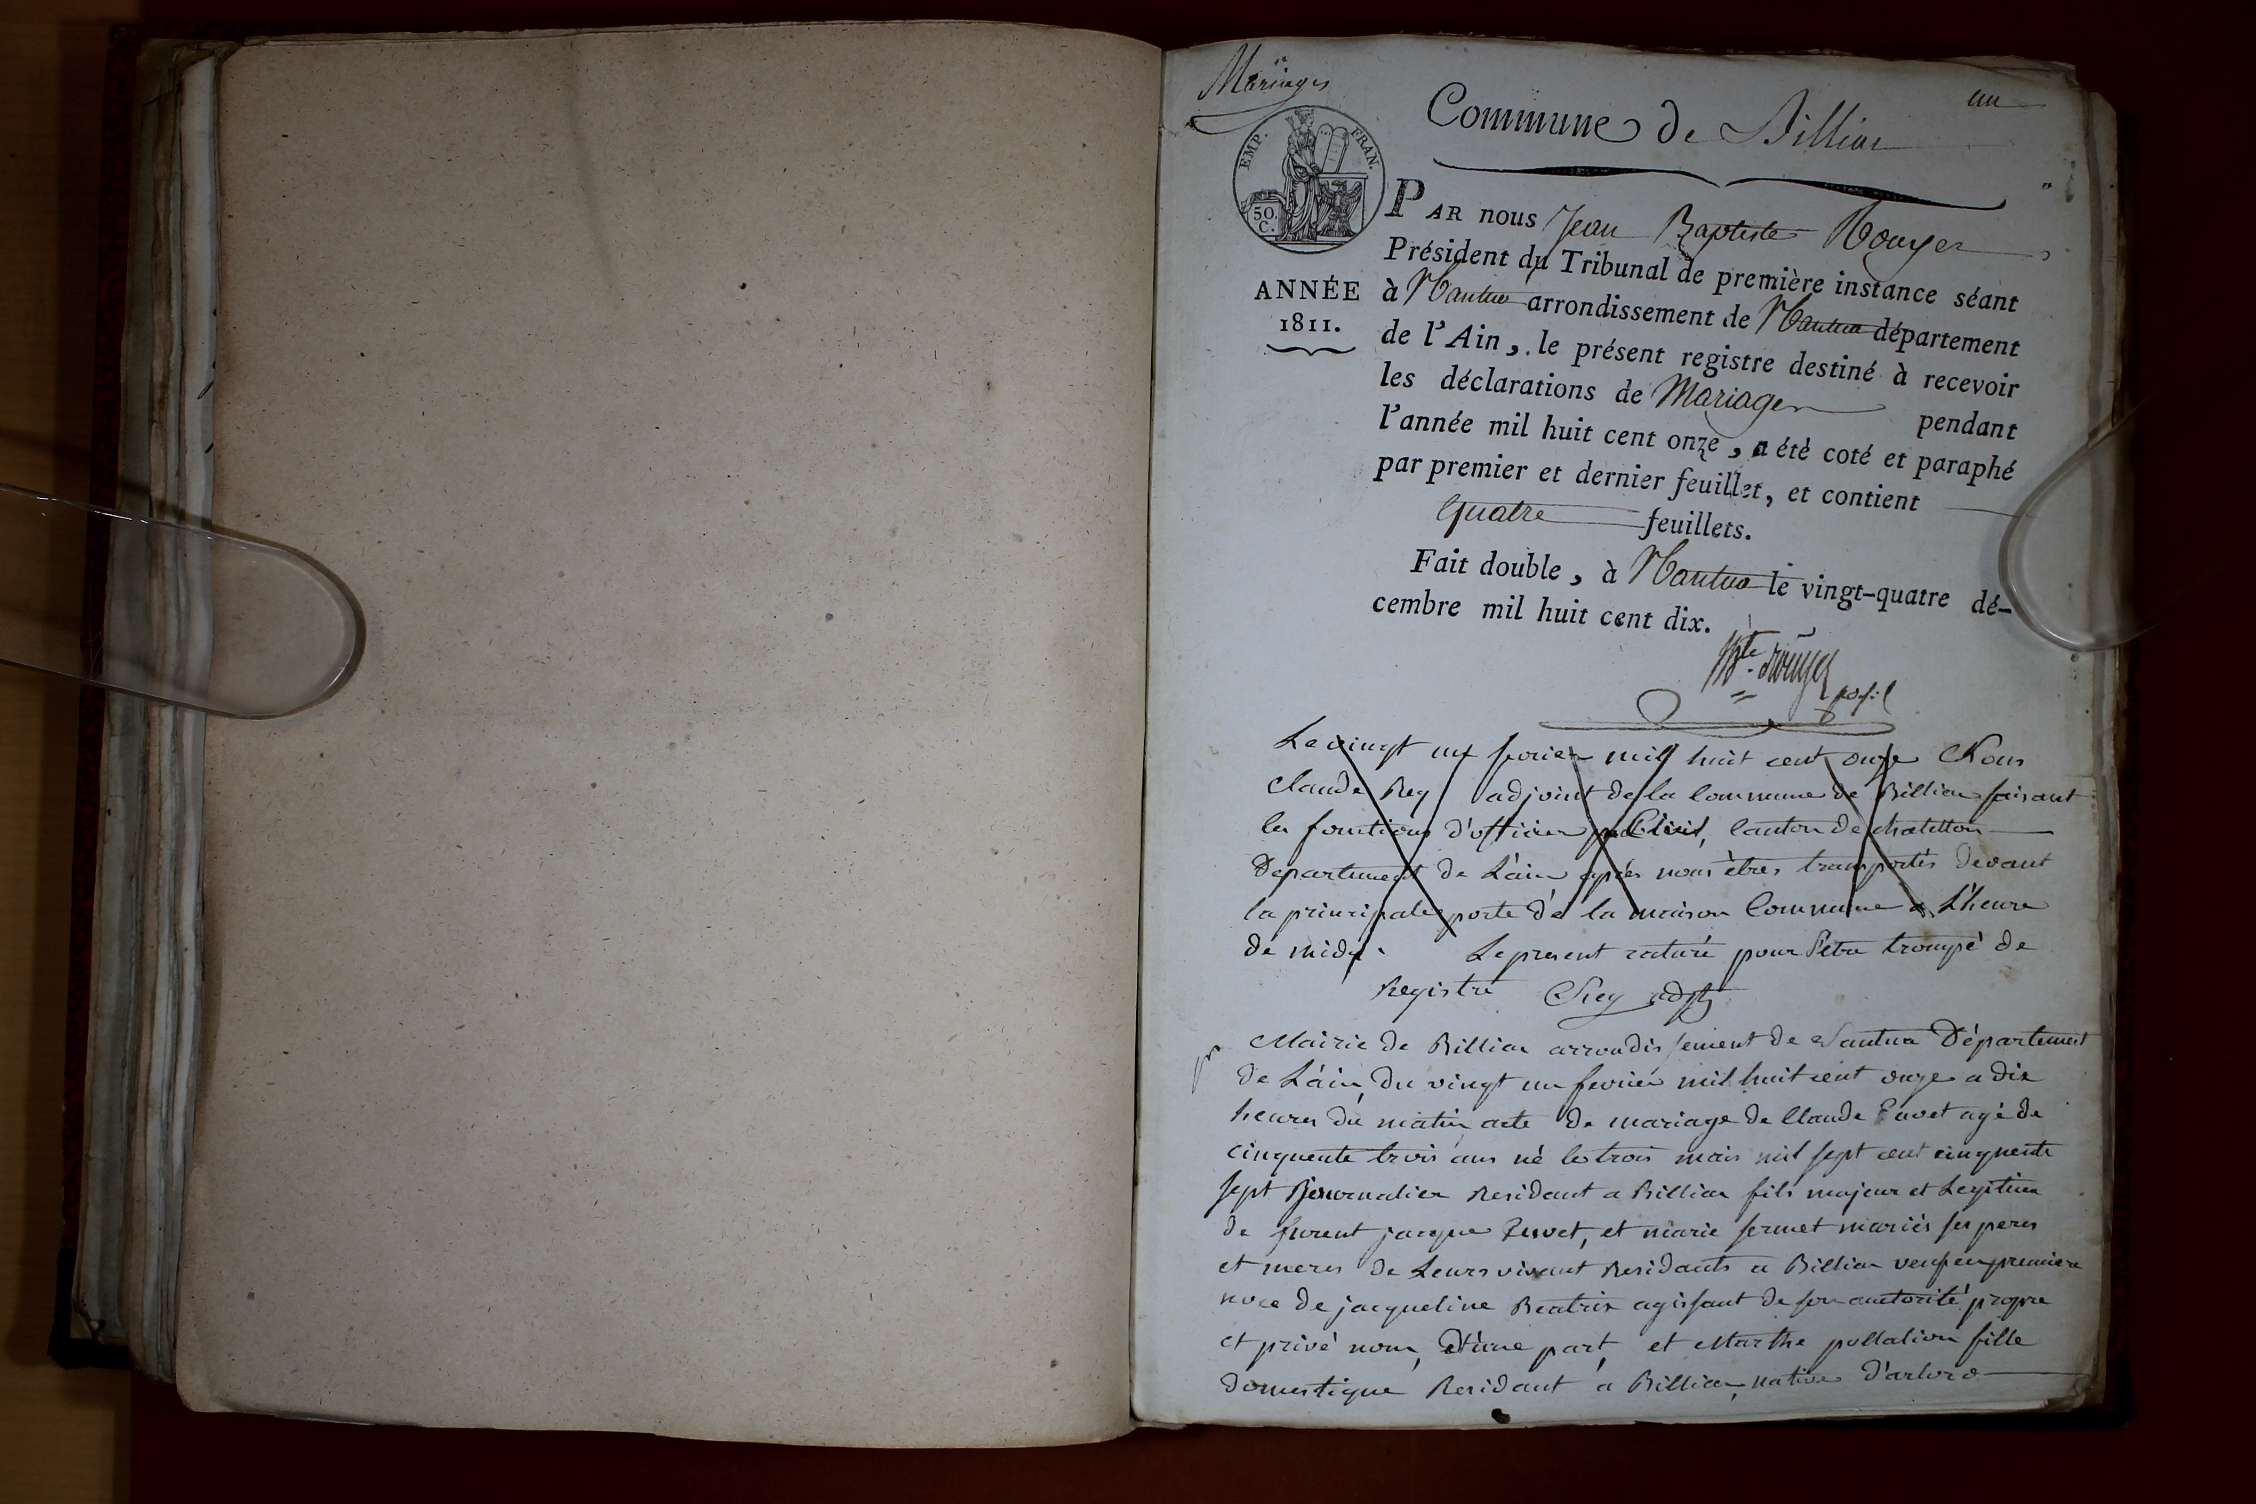 Mariages
un
Commune de Billiat
EMP. FRAN.
50. C.
ANNÉE
1811.
PAR nous Jean Baptiste Rouyer
Président du Tribunal de première instance séant
à Nantua arrondissement de Nantua département
de l'Ain, le présent registre destiné à recevoir
les déclarations de Mariages pendant
l'année mil huit cent onze, a été coté et paraphé
par premier et dernier feuillet, et contient
quatre feuillets.
Fait double, à Nantua le vingt-quatre dé-
cembre mil huit cent dix.
Bte Rouyer
Le vingt un fevrier mil huit cent onze Nous
Claude Rey adjoint de la Commune de Billiat faisant
les fonctions d'officier Civil, Canton de chatillon
Departement de L'ain après nous êtres transportés devant
la principale porte de la maison Commune a L'heure
de midy. Le present raturé pour s'etre trompé de
Registre Rey adjt
Mairie de Billiat arrondissement de Nantua Département
de L'ain, Du vingt un fevrier mil huit cent onze a dix
heures du matin acte de mariage de Claude agé de
cinquente trois ans né le trois mars mil sept cent cinquente
sept Journalier Residant a Billiat fils majeur et Legitime
de jacque et marie fermet mariés ses peres
et meres de Leurs vivant Residants a Billiat veuf en premiere
noce de jacqueline Beatrix agissant de son auctorité propre
et privé nom, D'une part, et Marthe pollalion fille
domestique Residant a Billiat, native D'arlod